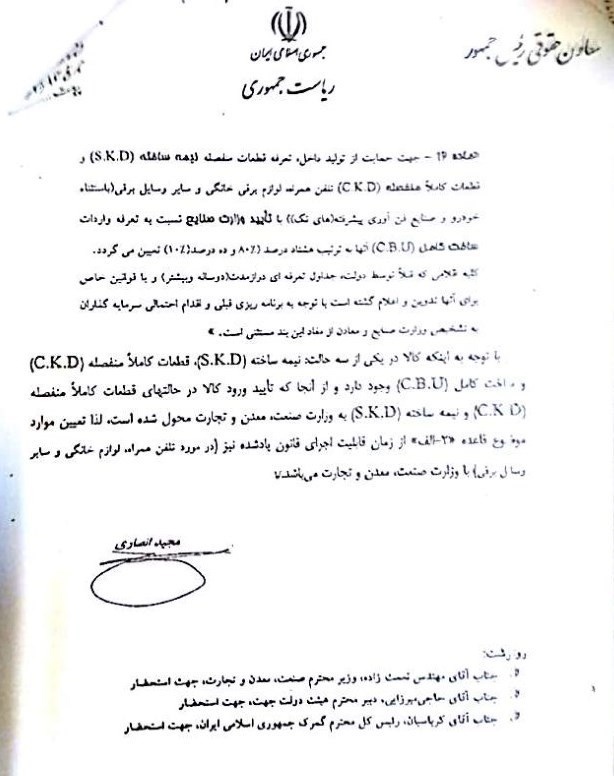 جمهوری اسلامی ایران
ریاست جمهوری
معاون حقوقی رئیس جمهور
ماده ۱۹ - جهت حمایت از تولید داخل، تعرفه قطعات منفصله نیمه ساخته (S.K.D) و
قطعات کاملاً منفصله (C.K.D) تلفن همراه، لوازم برقی خانگی و سایر وسایل برقی (باستثناء
خودرو و صنایع فن آوری پیشرفته(های تک)) با تأیید وزارت صنایع نسبت به تعرفه واردات
ساخت کامل (C.B.U) آنها به ترتیب هشتاد درصد (۸۰٪) و ده درصد(۱۰٪) تعیین می گردد.
کلیه اقلامی که قبلاً توسط دولت، جداول تعرفه ای درازمدت(دوساله وبیشتر) و با قوانین خاص
برای آنها تدوین و اعلام گشته است با توجه به برنامه ریزی قبلی و اقدام احتمالی سرمایه گذاران
به تشخیص وزارت صنایع و معادن از مفاد این بند مستثنی است. »
با توجه به اینکه کالا در یکی از سه حالت: نیمه ساخته (S.K.D)، قطعات کاملاً منفصله (C.K.D)
و ساخت کامل (C.B.U) وجود دارد و از آنجا که تأیید ورود کالا در حالتهای قطعات کاملاً منفصله
(C.K.D) و نیمه ساخته (S.K.D) به وزارت صنعت، معدن و تجارت محول شده است، لذا تعیین موارد
موضوع قاعده «۲-الف» از زمان قابلیت اجرای قانون یادشده نیز (در مورد تلفن همراه، لوازم خانگی و سایر
وسایل برقی) با وزارت صنعت، معدن و تجارت می‌باشد.
مجید انصاری
رونوشت:
جناب آقای مهندس نعمت زاده، وزیر محترم صنعت، معدن و تجارت، جهت استحضار
جناب آقای حاجی‌میرزایی، دبیر محترم هیئت دولت جهت، جهت استحضار
جناب آقای کرباسیان، رئیس کل محترم گمرک جمهوری اسلامی ایران، جهت استحضار